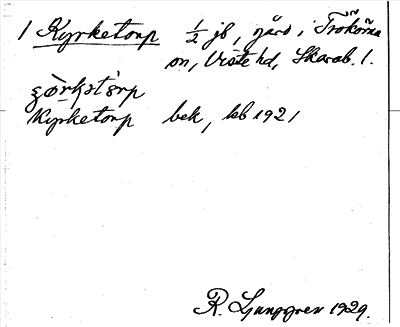 1 Kyrketorp ½ jb, gård i Trökörna
sn, Viste hd, Skarab. l.
Kyrketorp bek, kb 1921
R. Ljunggren 1929.